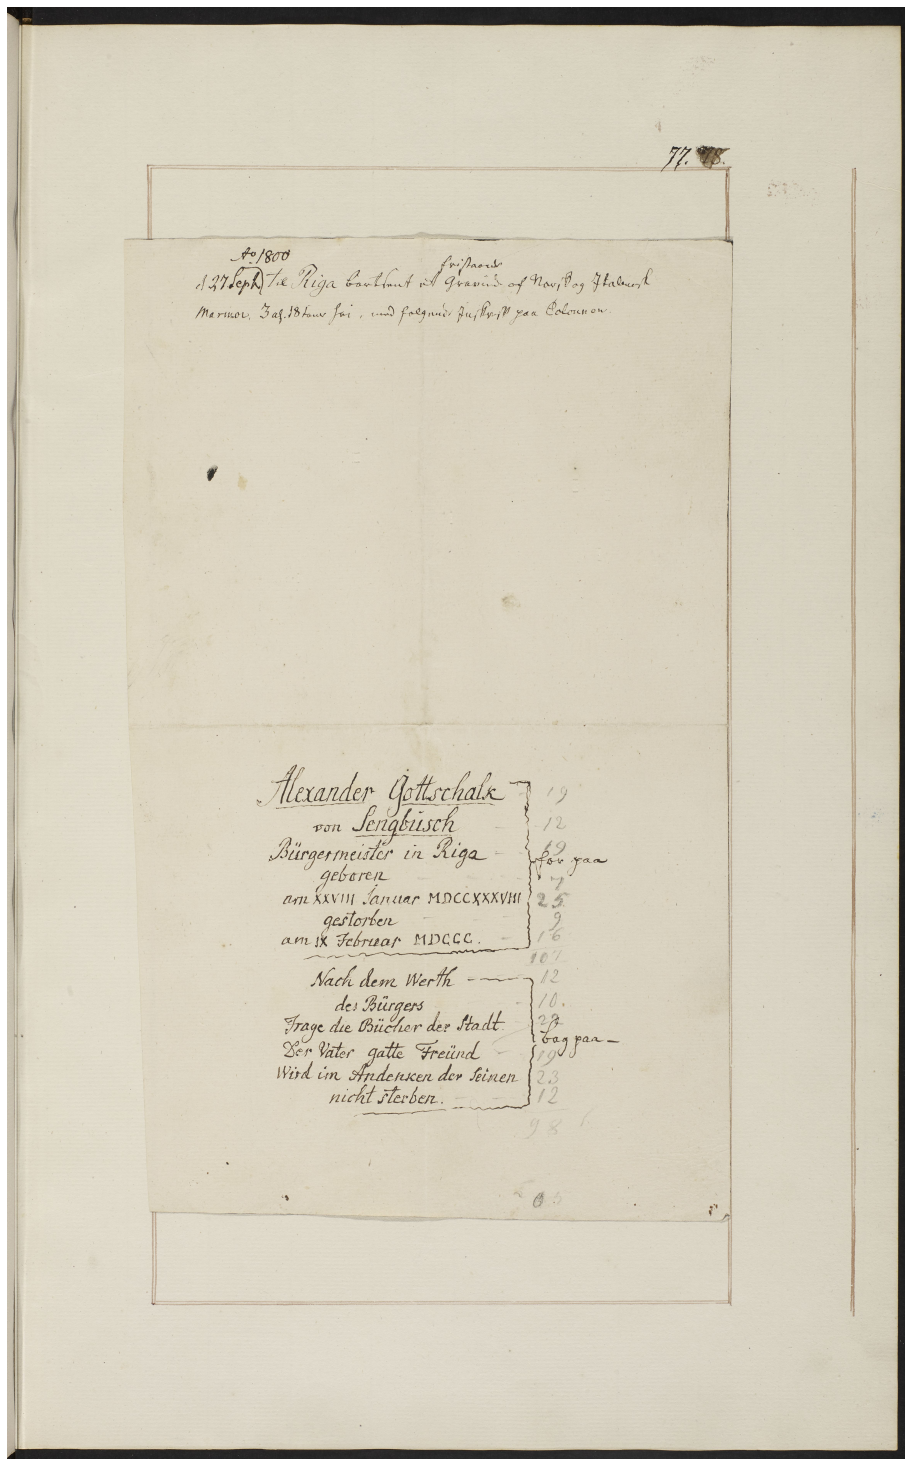 77. 78.
Ao 1800
fristaaende
d 27 Sept. Til Riga bortsent et Gravminde af Norsk og Italiensk
Marmor. 3 al. 18 tom høi, med følgende Inskript paa Colonnen.
Alexander Gottschalk 19
von Sengbüsch 12
Bürgermeister in Riga 19
for paa
geboren 7
am XXVIII Januar MDCCXXXVIII 25
gestorben 9
am IX Februar MDCCC. 16
107
Nach dem Werth 12
des Bürgers 10.
Frage die Bücher der Stadt. 22
bag paa
Der Vater gatte Freünd 19
Wird im Andenken der Seinen 23
nicht sterben. 12
98